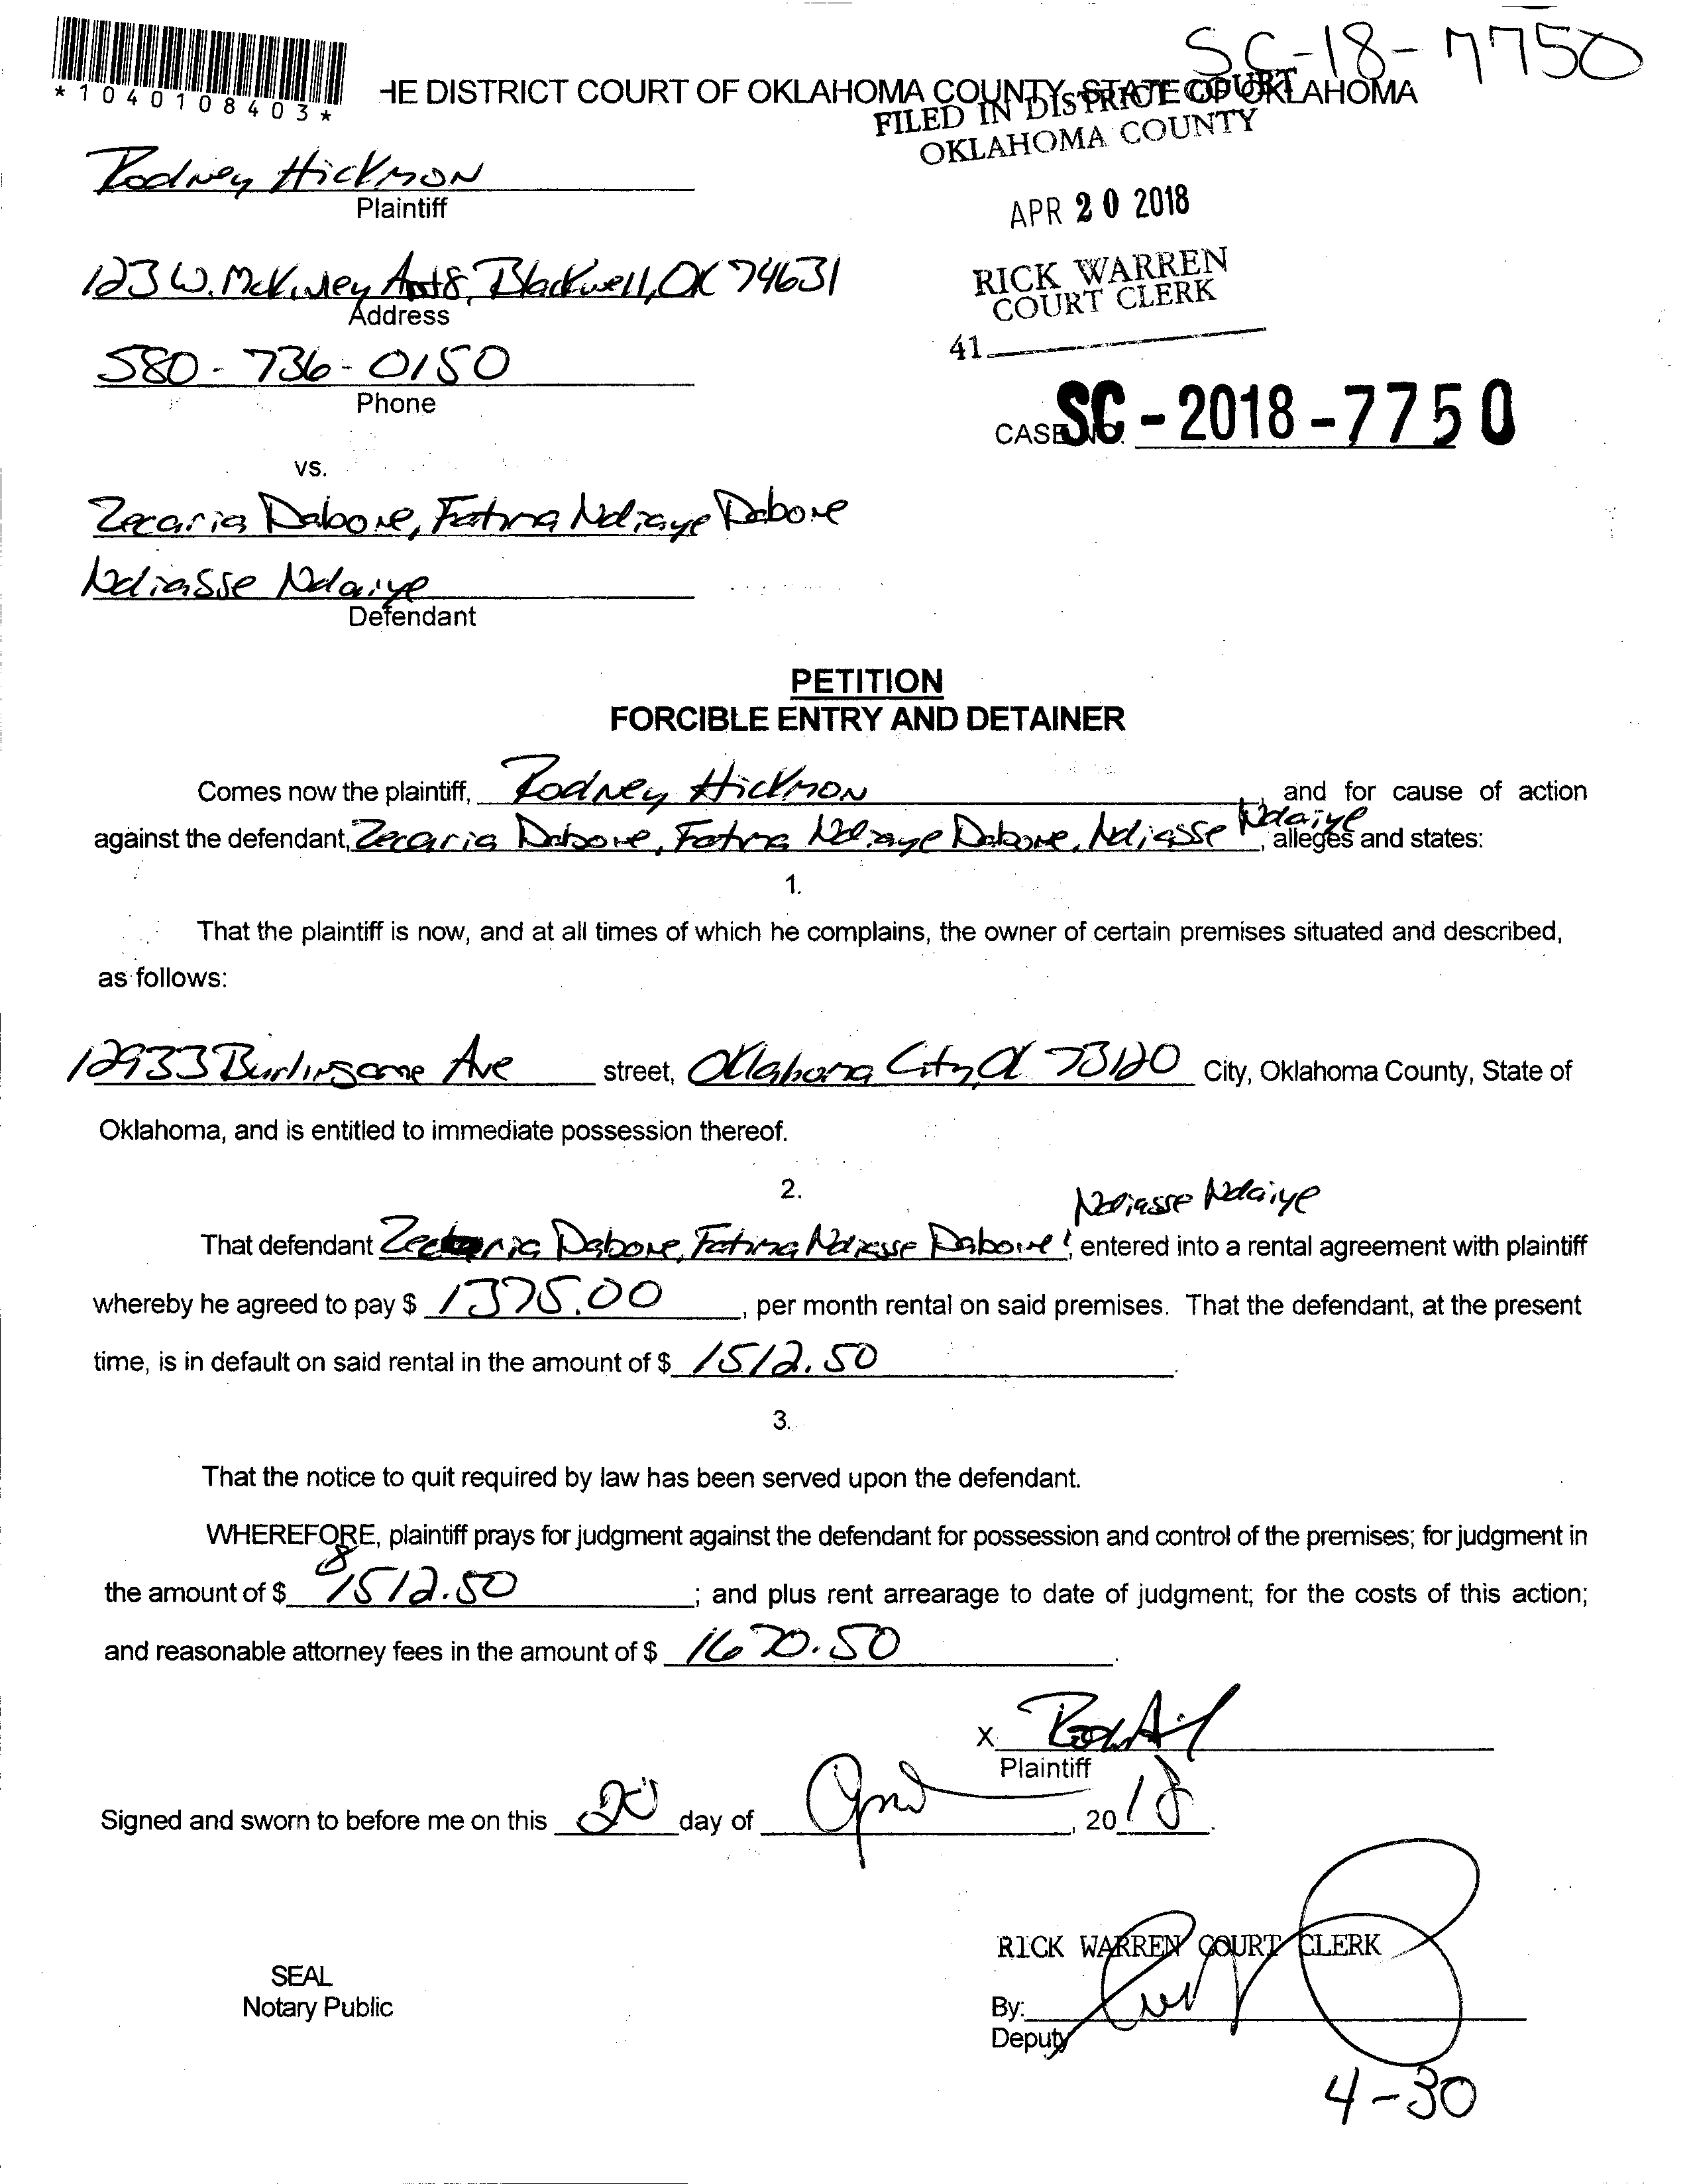 SC-18-7750
*1040108403*
HE DISTRICT COURT OF OKLAHOMA COUNTY, STATE OF OKLAHOMA
FILED IN DISTRICT COURT
OKLAHOMA COUNTY
Rodney Hickmon
Plaintiff
APR 20 2018
123 W. McKinley Apt 8, Blackwell, OK 74631
Address
RICK WARREN
COURT CLERK
41
580-736-0150
Phone
CASE NO. SC-2018-7750
vs.
Zecaria Dabone, Fatima Ndiaye Dabone
Ndiasse Ndaiye
Defendant
PETITION
FORCIBLE ENTRY AND DETAINER
Comes now the plaintiff, Rodney Hickmon, and for cause of action
against the defendant, Zecaria Dabone, Fatma Ndiaye Dabone, Ndiasse Ndaiye, alleges and states:
1.
That the plaintiff is now, and at all times of which he complains, the owner of certain premises situated and described,
as follows:
12933 Burlingame Ave street, Oklahoma City, Ok 73120 City, Oklahoma County, State of
Oklahoma, and is entitled to immediate possession thereof.
2.
Ndiasse Ndaiye
That defendant Zecaria Dabone, Fatima Ndiasse Dabone, entered into a rental agreement with plaintiff
whereby he agreed to pay $ 1375.00, per month rental on said premises. That the defendant, at the present
time, is in default on said rental in the amount of $ 1512.50.
3.
That the notice to quit required by law has been served upon the defendant.
WHEREFORE, plaintiff prays for judgment against the defendant for possession and control of the premises; for judgment in
the amount of $ 1512.50; and plus rent arrearage to date of judgment; for the costs of this action;
and reasonable attorney fees in the amount of $ 1670.50.
X
Plaintiff
Signed and sworn to before me on this 20 day of April, 2018.
RICK WARREN COURT CLERK
SEAL
Notary Public
By:
Deputy
4-30